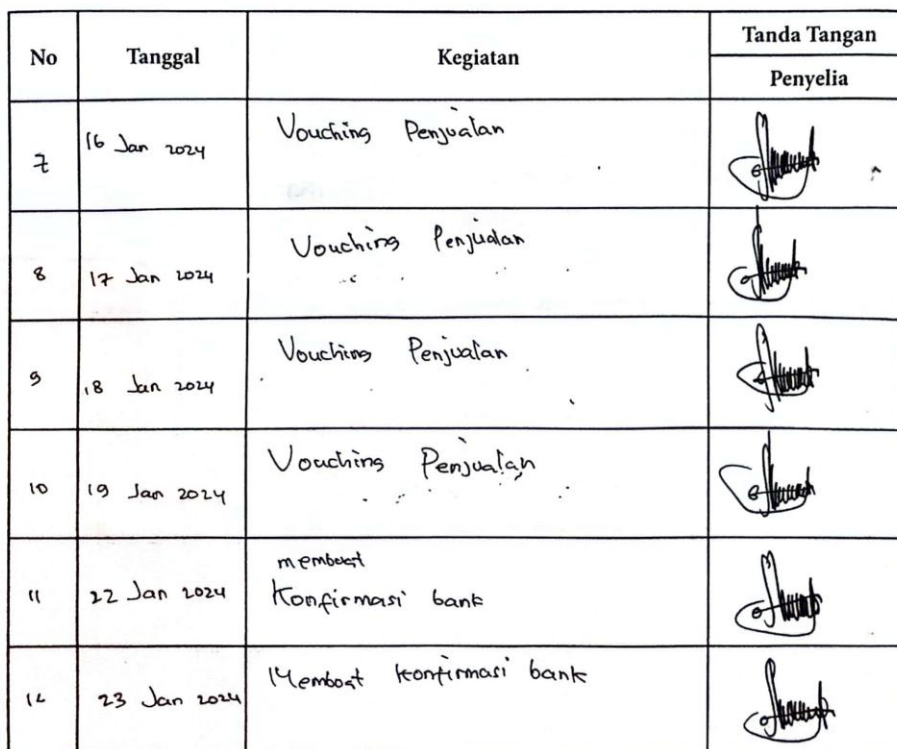 No Tanggal Kegiatan Tanda Tangan
Penyelia
7 16 Jan 2024 Vouching Penjualan
8 17 Jan 2024 Vouching Penjualan
9 18 Jan 2024 Vouching Penjualan
10 19 Jan 2024 Vouching Penjualan
membuat
11 22 Jan 2024 Konfirmasi bank
12 23 Jan 2024 Membuat Konfirmasi bank